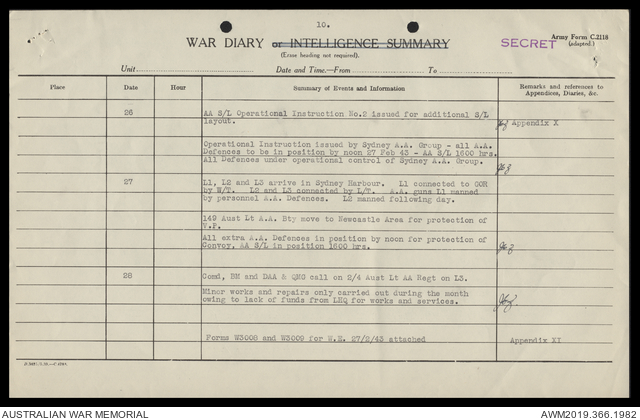 10.
WAR DIARY or INTELLIGENCE SUMMARY
(Erase heading not required).
SECRET
Army Form C.2118
(adapted.)
Unit
Date and Time.—From
To
Place
Date
Hour
Summary of Events and Information
Remarks and references to
Appendices, Diaries, &c.
26
AA S/L Operational Instruction No.2 issued for additional S/L
layout.
Appendix X
Operational Instruction issued by Sydney A.A. Group - all A.A.
Defences to be in position by noon 27 Feb 43 - AA S/L 1600 hrs.
All Defences under operational control of Sydney A.A. Group.
27
L1, L2 and L3 arrive in Sydney Harbour. L1 connected to GOR
by W/T. L2 and L3 connected by L/T. A.A. guns L1 manned
by personnel A.A. Defences. L2 manned following day.
149 Aust Lt A.A. Bty move to Newcastle Area for protection of
V.P.
All extra A.A. Defences in position by noon for protection of
Convoy, AA S/L in position 1600 hrs.
28
Comd, BM and DAA & QMG call on 2/4 Aust Lt AA Regt on L3.
Minor works and repairs only carried out during the month
owing to lack of funds from LHQ for works and services.
Forms W3008 and W3009 for W.E. 27/2/43 attached
Appendix XI
AUSTRALIAN WAR MEMORIAL
AWM2019.366.1982